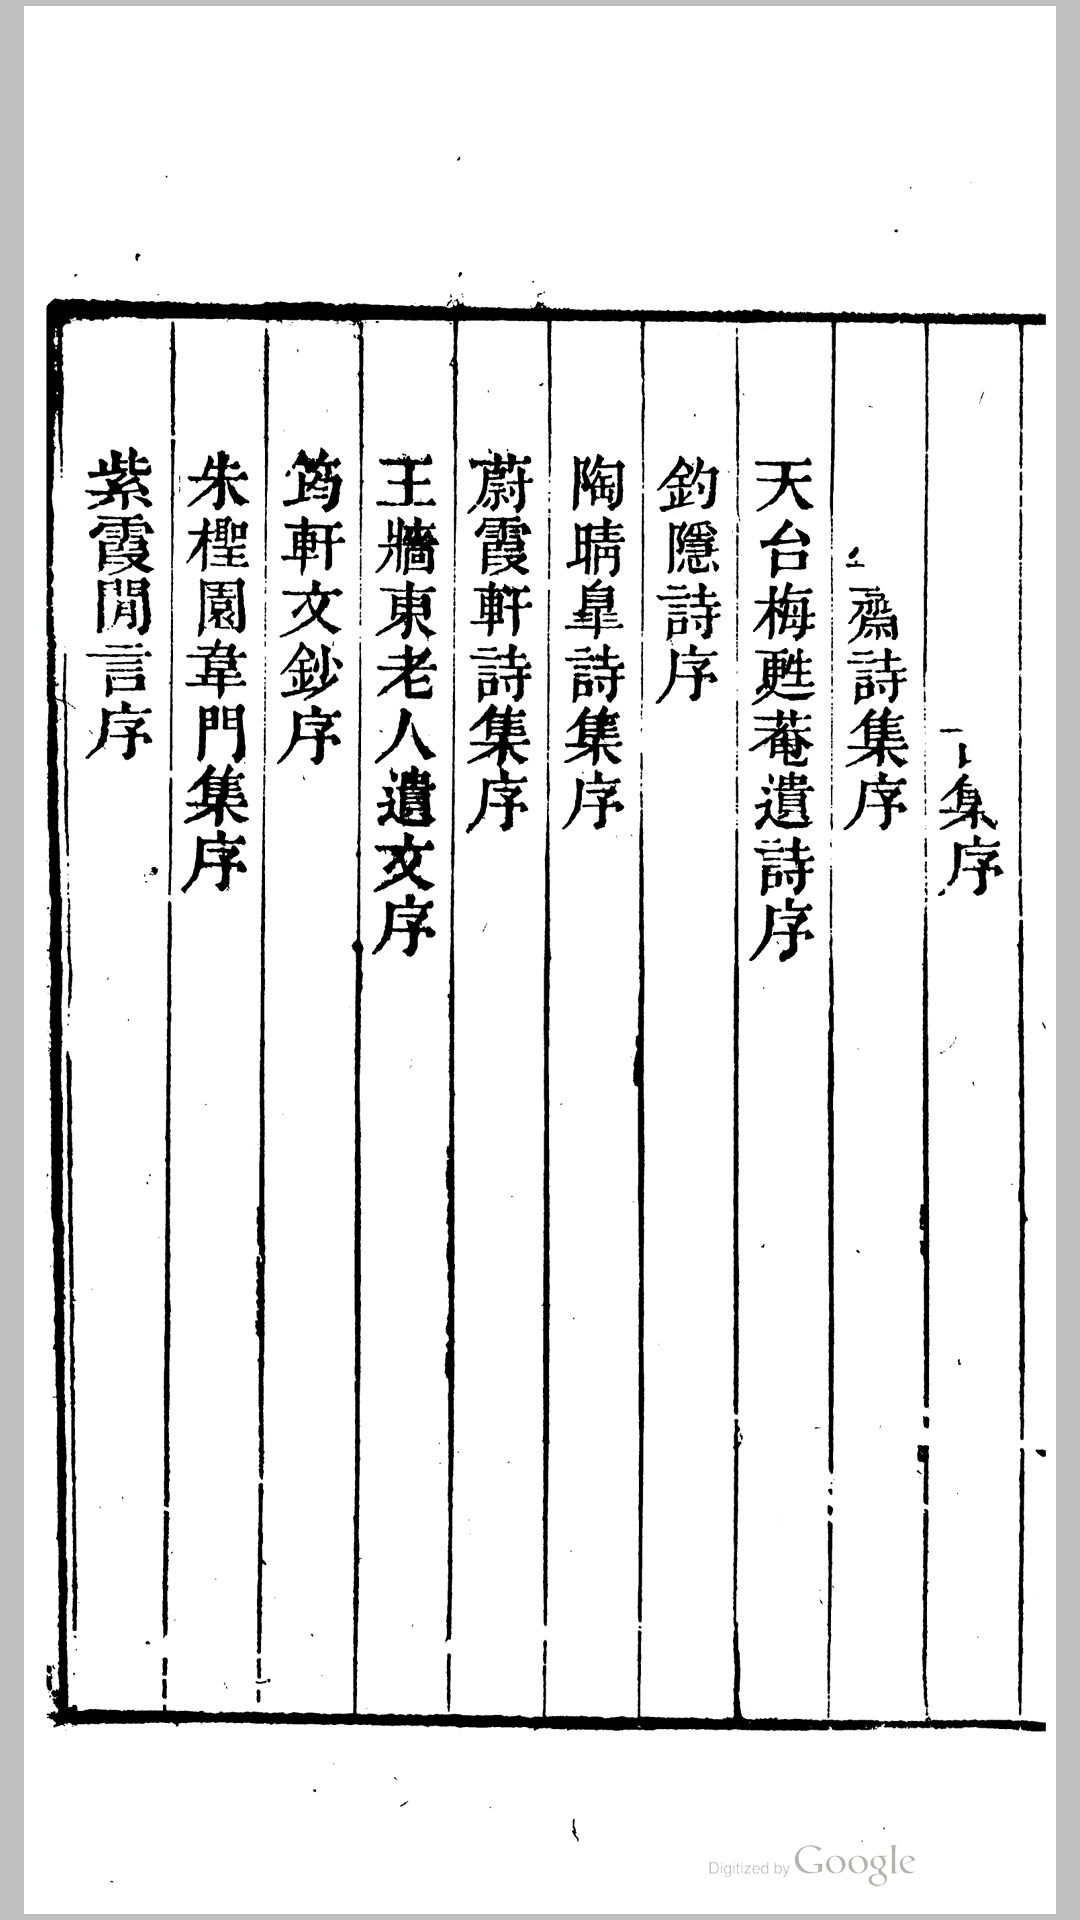 集序
齋詩集序
天台梅甦菴遺詩序
釣隱詩序
陶晴皐詩集序
蔚霞軒詩集序
王牆東老人遺文序
筠軒文鈔序
朱檉園韋門集序
紫霞閒言序
Digitized by Google